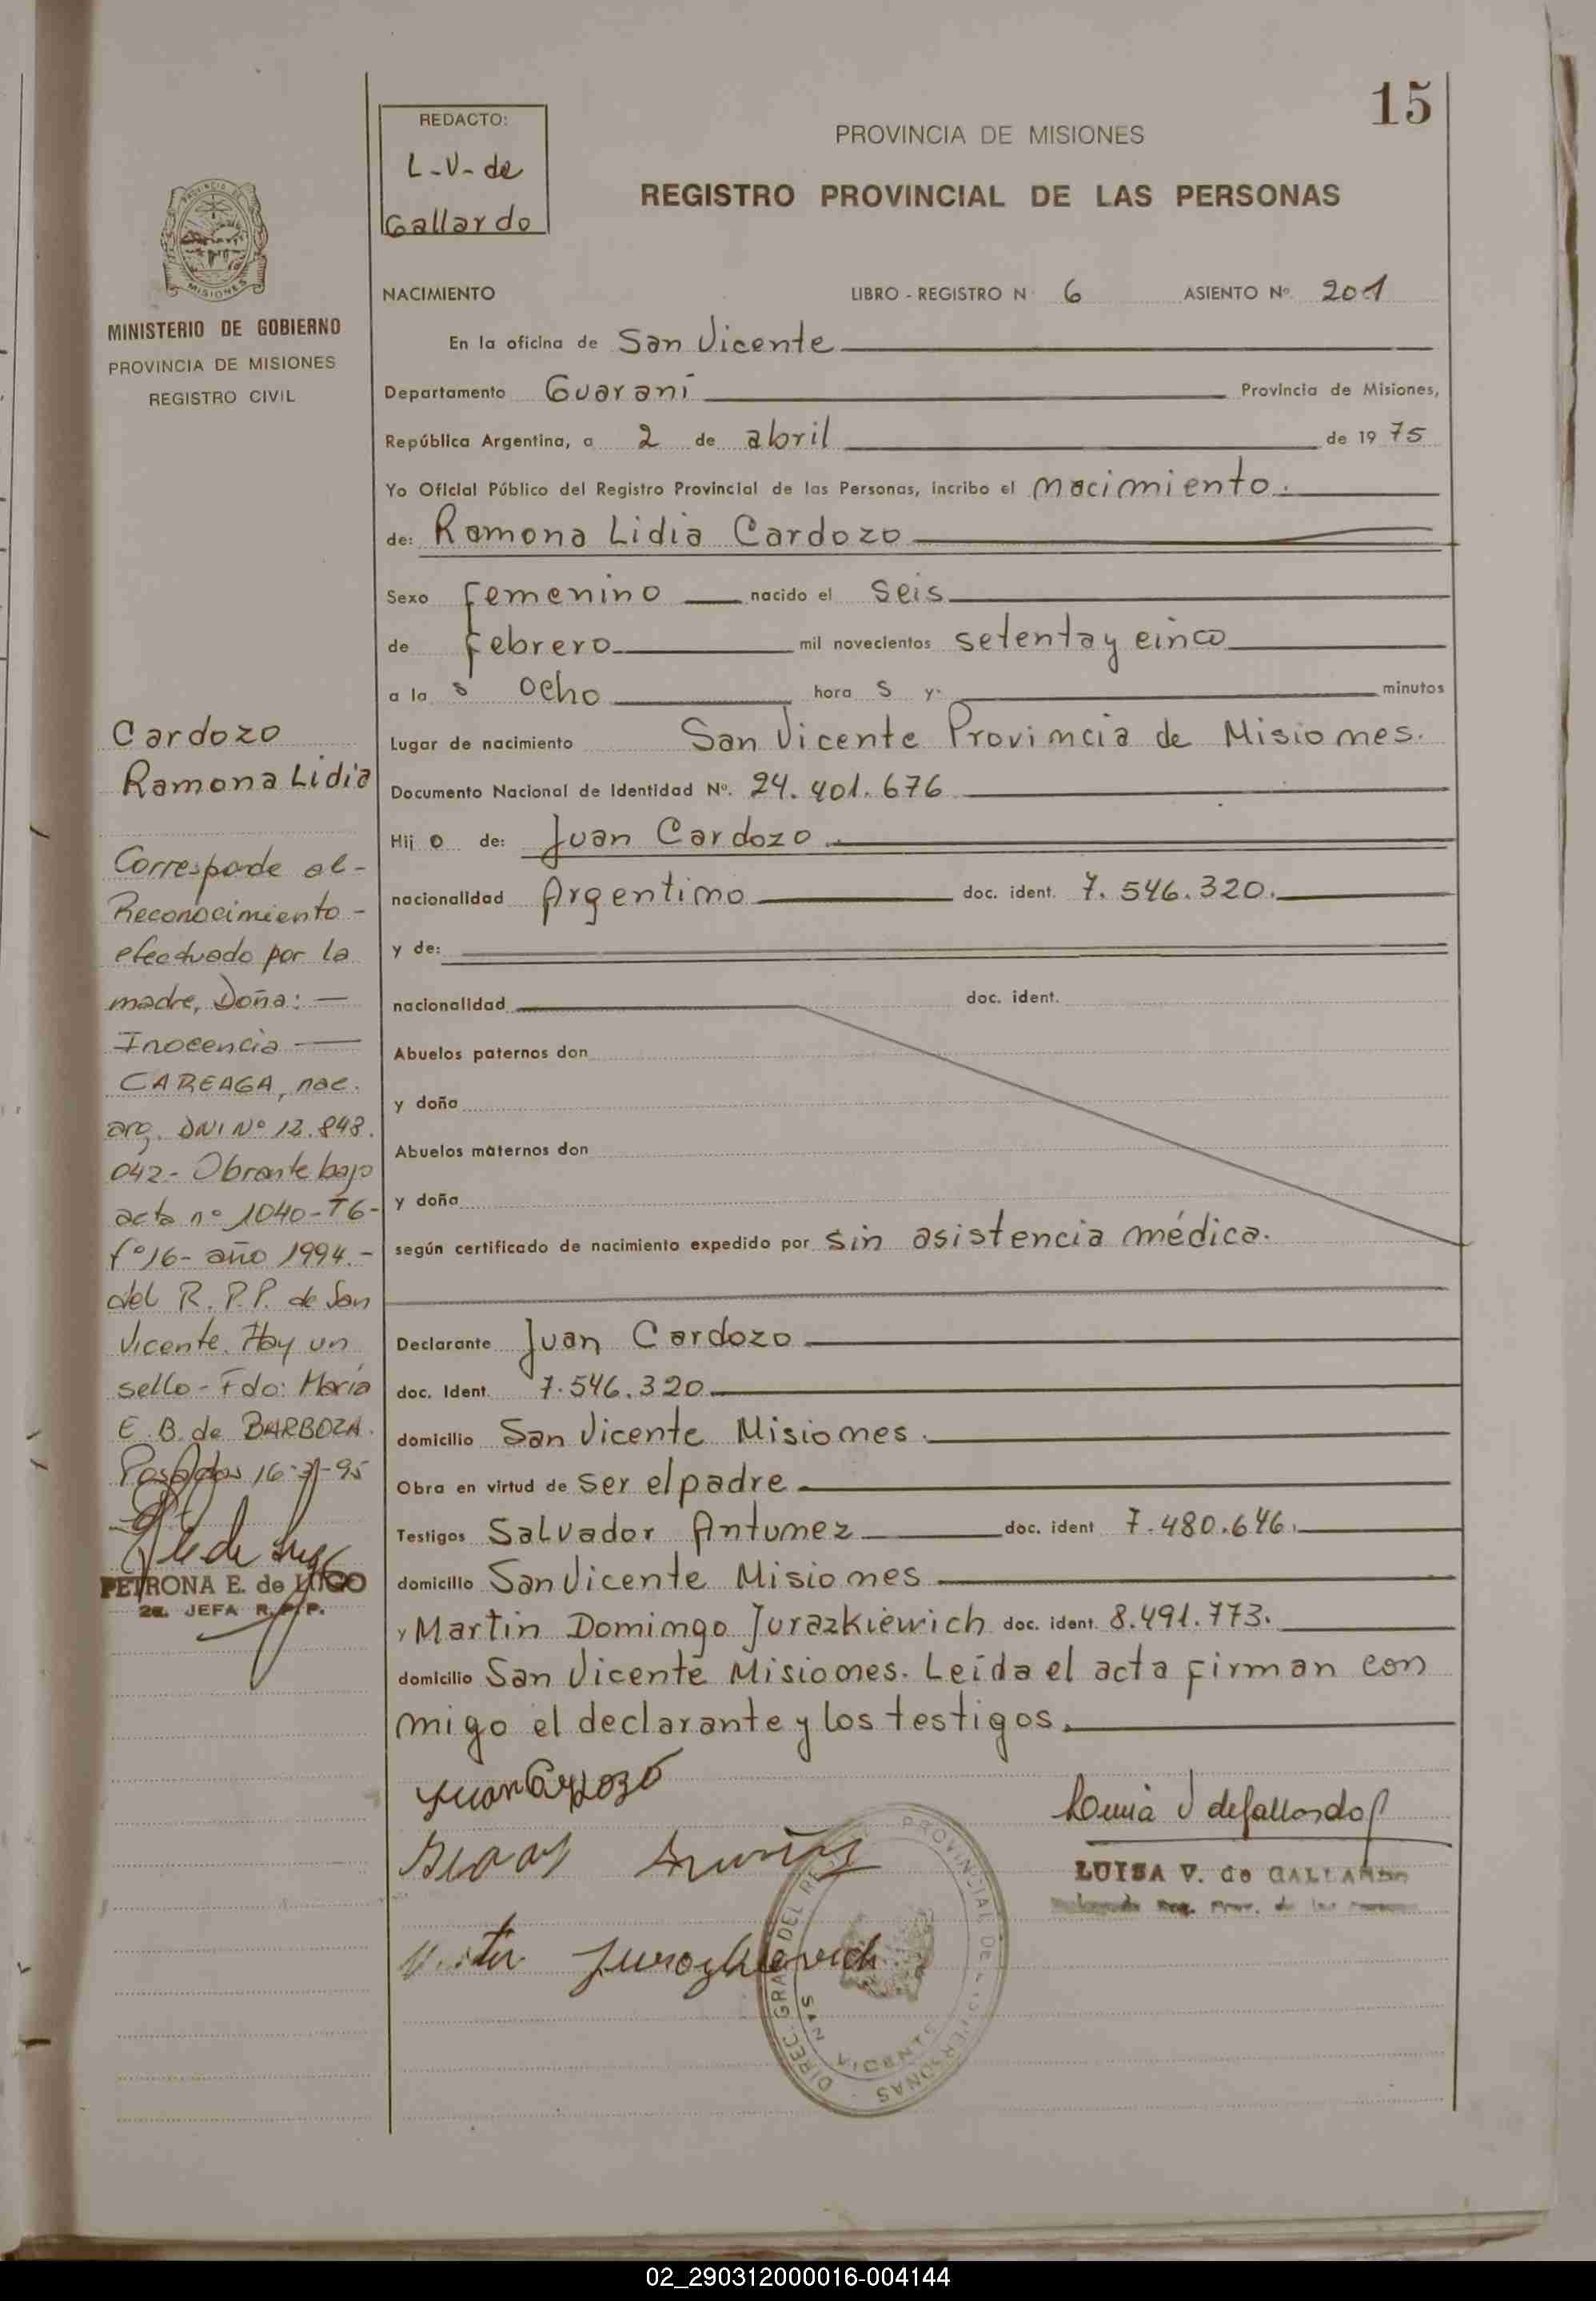 15
REDACTO:
L-V-de
Gallardo
PROVINCIA DE MISIONES
REGISTRO PROVINCIAL DE LAS PERSONAS
MISIONES
MINISTERIO DE GOBIERNO
PROVINCIA DE MISIONES
REGISTRO CIVIL
NACIMIENTO LIBRO - REGISTRO N 6 ASIENTO Nº. 201
En la oficina de San Vicente
Departamento Guaraní Provincia de Misiones,
República Argentina, a 2 de abril de 1975
Yo Oficial Público del Registro Provincial de las Personas, incribo el nacimiento.
de: Ramona Lidia Cardozo
Sexo femenino nacido el seis
de febrero mil novecientos setenta y cinco
a la s ocho hora s y minutos
Lugar de nacimiento San Vicente Provincia de Misiones.
Documento Nacional de Identidad Nº. 24.401.676
Hij o de: Juan Cardozo.
nacionalidad Argentino doc. ident. 7.546.320.
y de:
nacionalidad doc. ident.
Abuelos paternos don
y doña
Abuelos maternos don
y doña
según certificado de nacimiento expedido por sin asistencia médica.
Declarante Juan Cardozo
doc. Ident. 7.546.320
domicilio San Vicente Misiones.
Obra en virtud de ser el padre
Testigos Salvador Antunez doc. ident 7.480.646.
domicilio San Vicente Misiones
y Martin Domingo Jurazkiewich doc. ident. 8.491.773.
domicilio San Vicente Misiones. Leída el acta firman con
migo el declarante y los testigos.
Cardozo
Ramona Lidia
Corresponde al-
Reconocimiento-
efectuado por la
madre, Doña:
Inocencia
CAREAGA, nac.
arg. DNI Nº 12.848.
042- Obrante bajo
acta nº 1040-T6-
fº16- año 1994.-
del R.P.P. de San
Vicente. Hay un
sello- Fdo: María
E. B. de BARBOZA.
Posadas
PETRONA E. de LUGO
2a. JEFA R.P.P.
Juan Cardozo
LUISA V. de GALLARDO
DIREC. GRAL DEL REG. PROVINCIAL DE LAS PERSONAS
SAN VICENTE
02_290312000016-004144